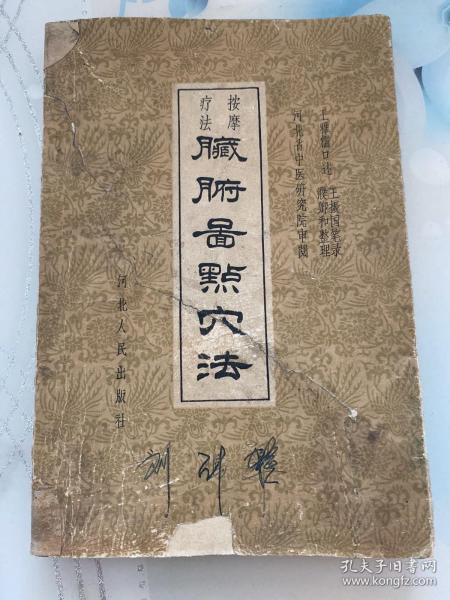 王雅儒口述 王振国笔录
濮卿和整理
河北省中医研究院审阅
按摩
疗法
臟腑啚點穴法
河北人民出版社
孔夫子旧书网
www.kongfz.com